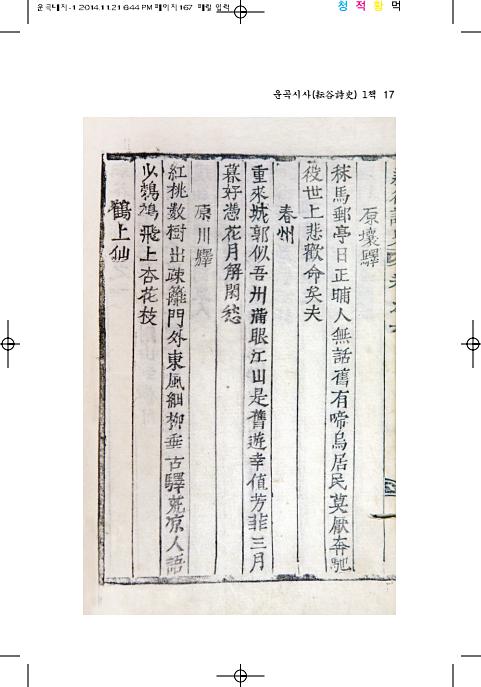 운곡시사-1 2014.11.21 6:44 PM 페이지167 매립 일력
청 적 황 먹
운곡시사(耘谷詩史) 1책 17
原壤驛
秣馬郵亭日正晡人無話舊有啼烏居民莫厭奔馳
役世上悲歡命矣夫
春州
重來城郭似吾州滿眼江山是舊遊幸值芳菲三月
暮好憑花月解閑愁
原川驛
紅桃數樹出疎籬門外東風細柳垂古驛荒凉人語
少鵓鳩飛上杏花枝
鶴上仙